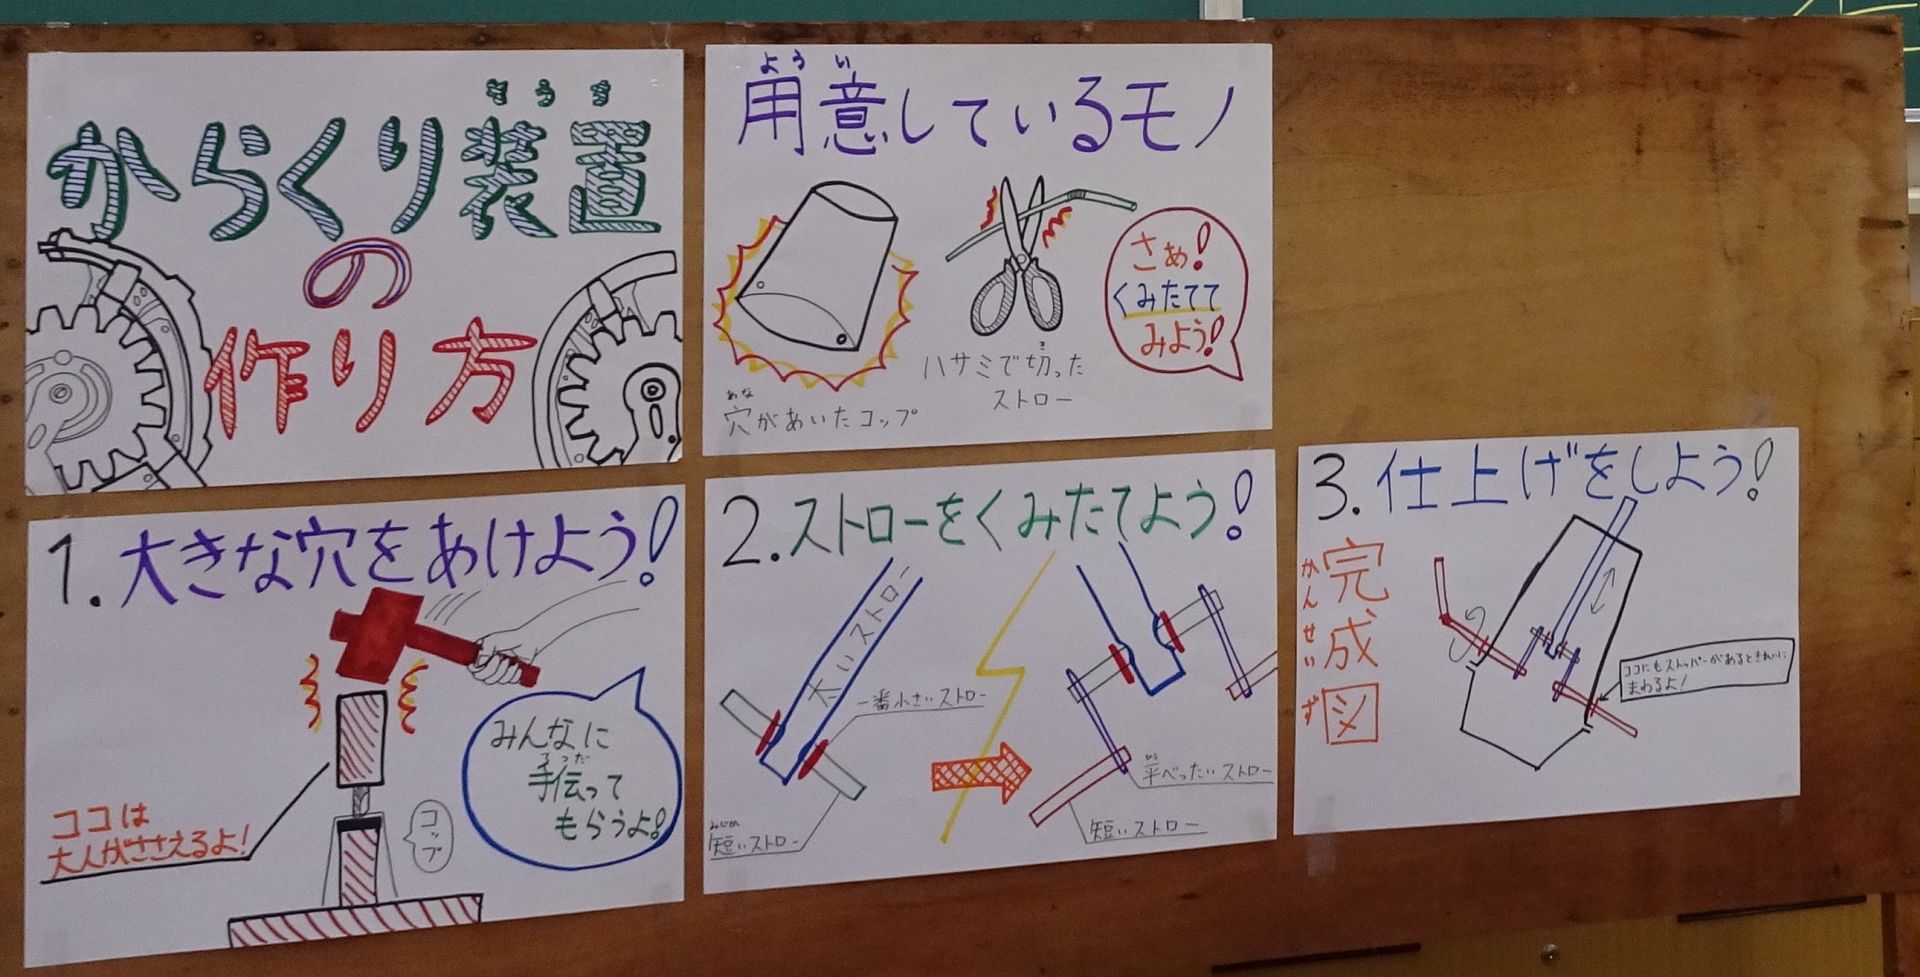 そうち
からくり装置
の
作り方
ようい
用意しているモノ
あな
穴があいたコップ
き
ハサミで切った
ストロー
さぁ!
くみたてて
みよう!
1. 大きな穴をあけよう!
ココは
大人がささえるよ!
コップ
みんなに
てつだ
手伝って
もらうよ!
2. ストローをくみたてよう!
太いストロー
一番小さいストロー
みじか
短いストロー
ひら
平べったいストロー
短いストロー
3. 仕上げをしよう!
かんせいず
完成図
ココにもストッパーがあるときれいに
まわるよ!